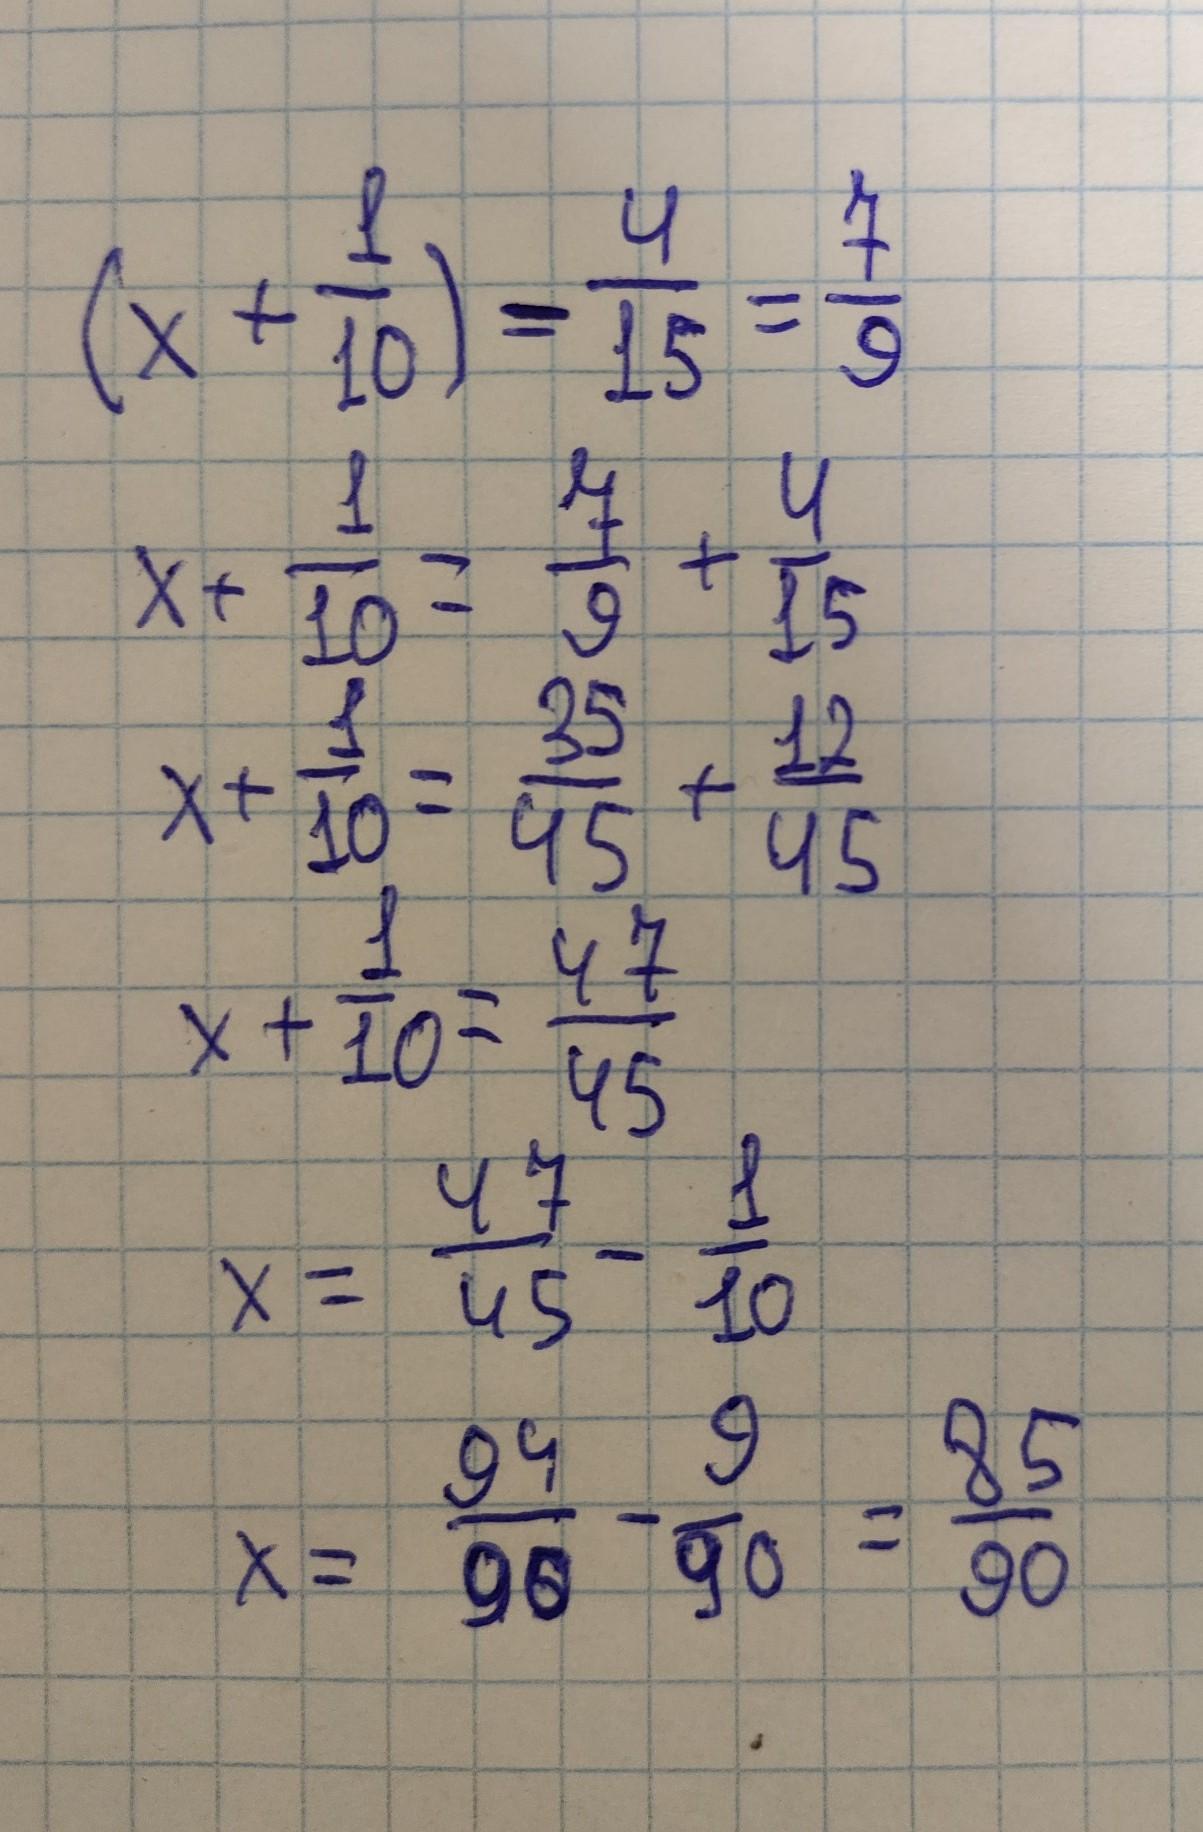 (x + 1/10) = 4/15 = 7/9
x + 1/10 = 7/9 + 4/15
x + 1/10 = 35/45 + 12/45
x + 1/10 = 47/45
x = 47/45 - 1/10
x = 94/90 - 9/90 = 85/90